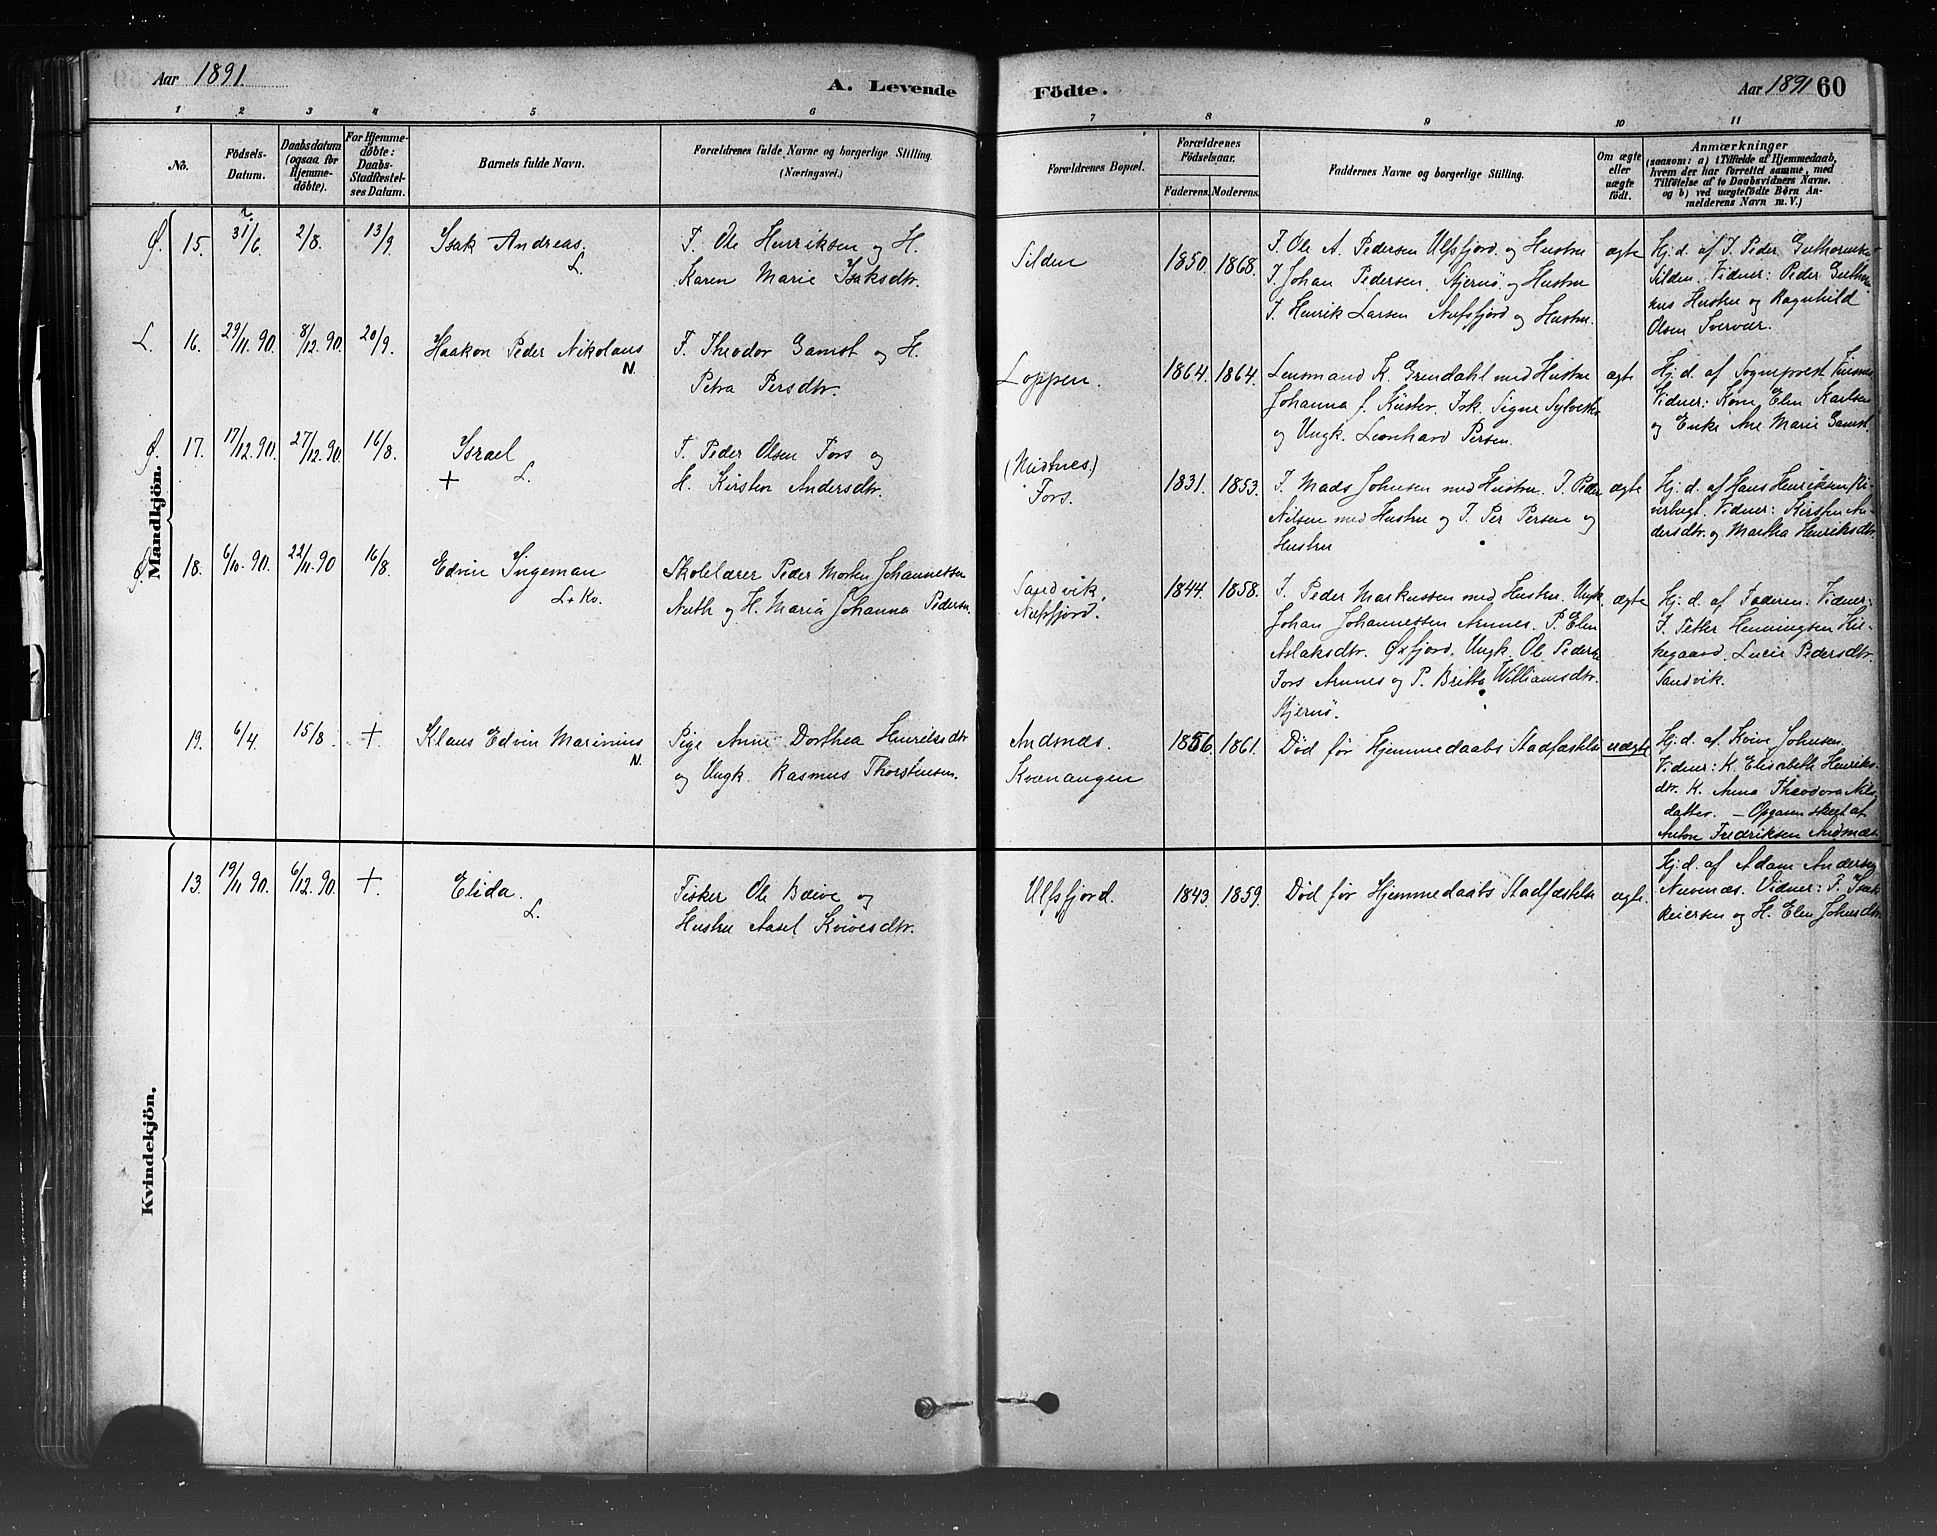 Aar 1891.
A. Levende
Födte.
Aar 1891 60
1 2 3 4 5 6 7 8 9 10 11
No.
Födsels-
Datum.
Daabsdatum
(ogsaa for
Hjemme-
döbte).
For Hjemme-
döbte:
Daabs-
Stadfæstel-
ses Datum.
Barnets fulde Navn.
Forældrenes fulde Navne og borgerlige Stilling.
(Næringsvei.)
Forældrenes Bopæl.
Forældrenes
Födselsaar.
Faderens. Moderens.
Faddernes Navne og borgerlige Stilling.
Om ægte
eller
uægte
født.
Anmærkninger
(saasom: a) i Tilfælde af Hjemmedaab,
hvem der har forrettet samme, med
Tilföielse af to Daabsvidners Navne.
og b) ved uægtefödte Börn An-
melderens Navn m. V.)
Mandkjön.
Ø. 15. 31/6 ? 2/8. 13/9 Isak Andreas.
L.
F. Ole Henriksen og H.
Karen Marie Isaksdtr.
Silden 1850. 1868.
F. Ole A. Pedersen Ulfsfjord og Hustru
F. Johan Pedersen, Stjernø og Hustru
F. Henrik Larsen Nufsfjord og Hustru.
ægte
Hj. d. af F. Peder
Silden. Vidner: Peder
Hustru og Ragnhild
Olsen
L. 16. 29/11.90. 8/12.90. 20/9. Haakon Peder Nikolaus
N.
F. Theodor Gamst og H.
Petra Persdtr.
Loppen. 1864. 1864.
Lensmand K. Grøndahl med Hustru
Johanna f. Küster. Frk. Signe
og Ungk. Leonhard Persen.
ægte
Hj. d. af Sogneprest
Vidner: Kone Elen Karlsen
og Enke Ane Marie Gamst.
Ø. 17. 17/12.90. 27/12.90. 16/8. Israel
+ L.
F. Peder Olsen Fors og
H. Kirsten Andersdtr.
Fors. 1831. 1853.
F. Mads Johnsen med Hustru. F. Peder
Nilsen med Hustru og F. Per Persen og
Hustru
ægte
Hj. d. af Hans Henriksen
Vidner: Kirsten An-
dersdtr. og Martha Henriksdtr.
Ø. 18. 6/10.90. 22/11.90 16/8. Edvin Ingeman
L + Kv.
Skolelærer Peder Morten Johannessen
og H. Maria Johanna Pedersen.
Sandvik,
Nufsfjord. 1844. 1858.
F. Peder Markussen med Hustru. Ungk.
Johan Johannessen Arnnes. P. Elen
Aslaksdtr. Øxfjord. Ungk. Ole Peders
Fors Arnnes og P. Britta Williamsdtr.
Stjernø.
ægte
Hj. d. af Faderen. Vidner:
F. Petter Henningsen Kir-
kegaard. Lucie Pedersdtr.
Sandvik.
19. 6/4. 15/8. + Klaus Edvin Marinius
N.
Pige Anne Dorthea Henriksdtr
og Ungk. Rasmus Thorstensen.
Andsnæs.
Kvænangen 1856. 1861.
Død før Hjemmedaabs Stadfæstelse
uægte
Hj. d. af Kone Johnsen.
Vidner: K. Elisabeth Henriks-
dtr. K. Anna Theodora Nils-
datter. – Opgaven skeet af
Anton Fredriksen Andsnæs
Kvindekjön.
13. 19/11.90. 6/12.90. + Elida.
L.
Fisker Ole Bæive og
Hustru Aasel Kvivesdtr.
Ulfsfjord. 1843. 1859.
Død før Hjemmedaabs Stadfæstelse
ægte.
Hj. d. af Adam Andersen
Vidner: P. Isak
Reiersen og H. Elen Johnsdtr.